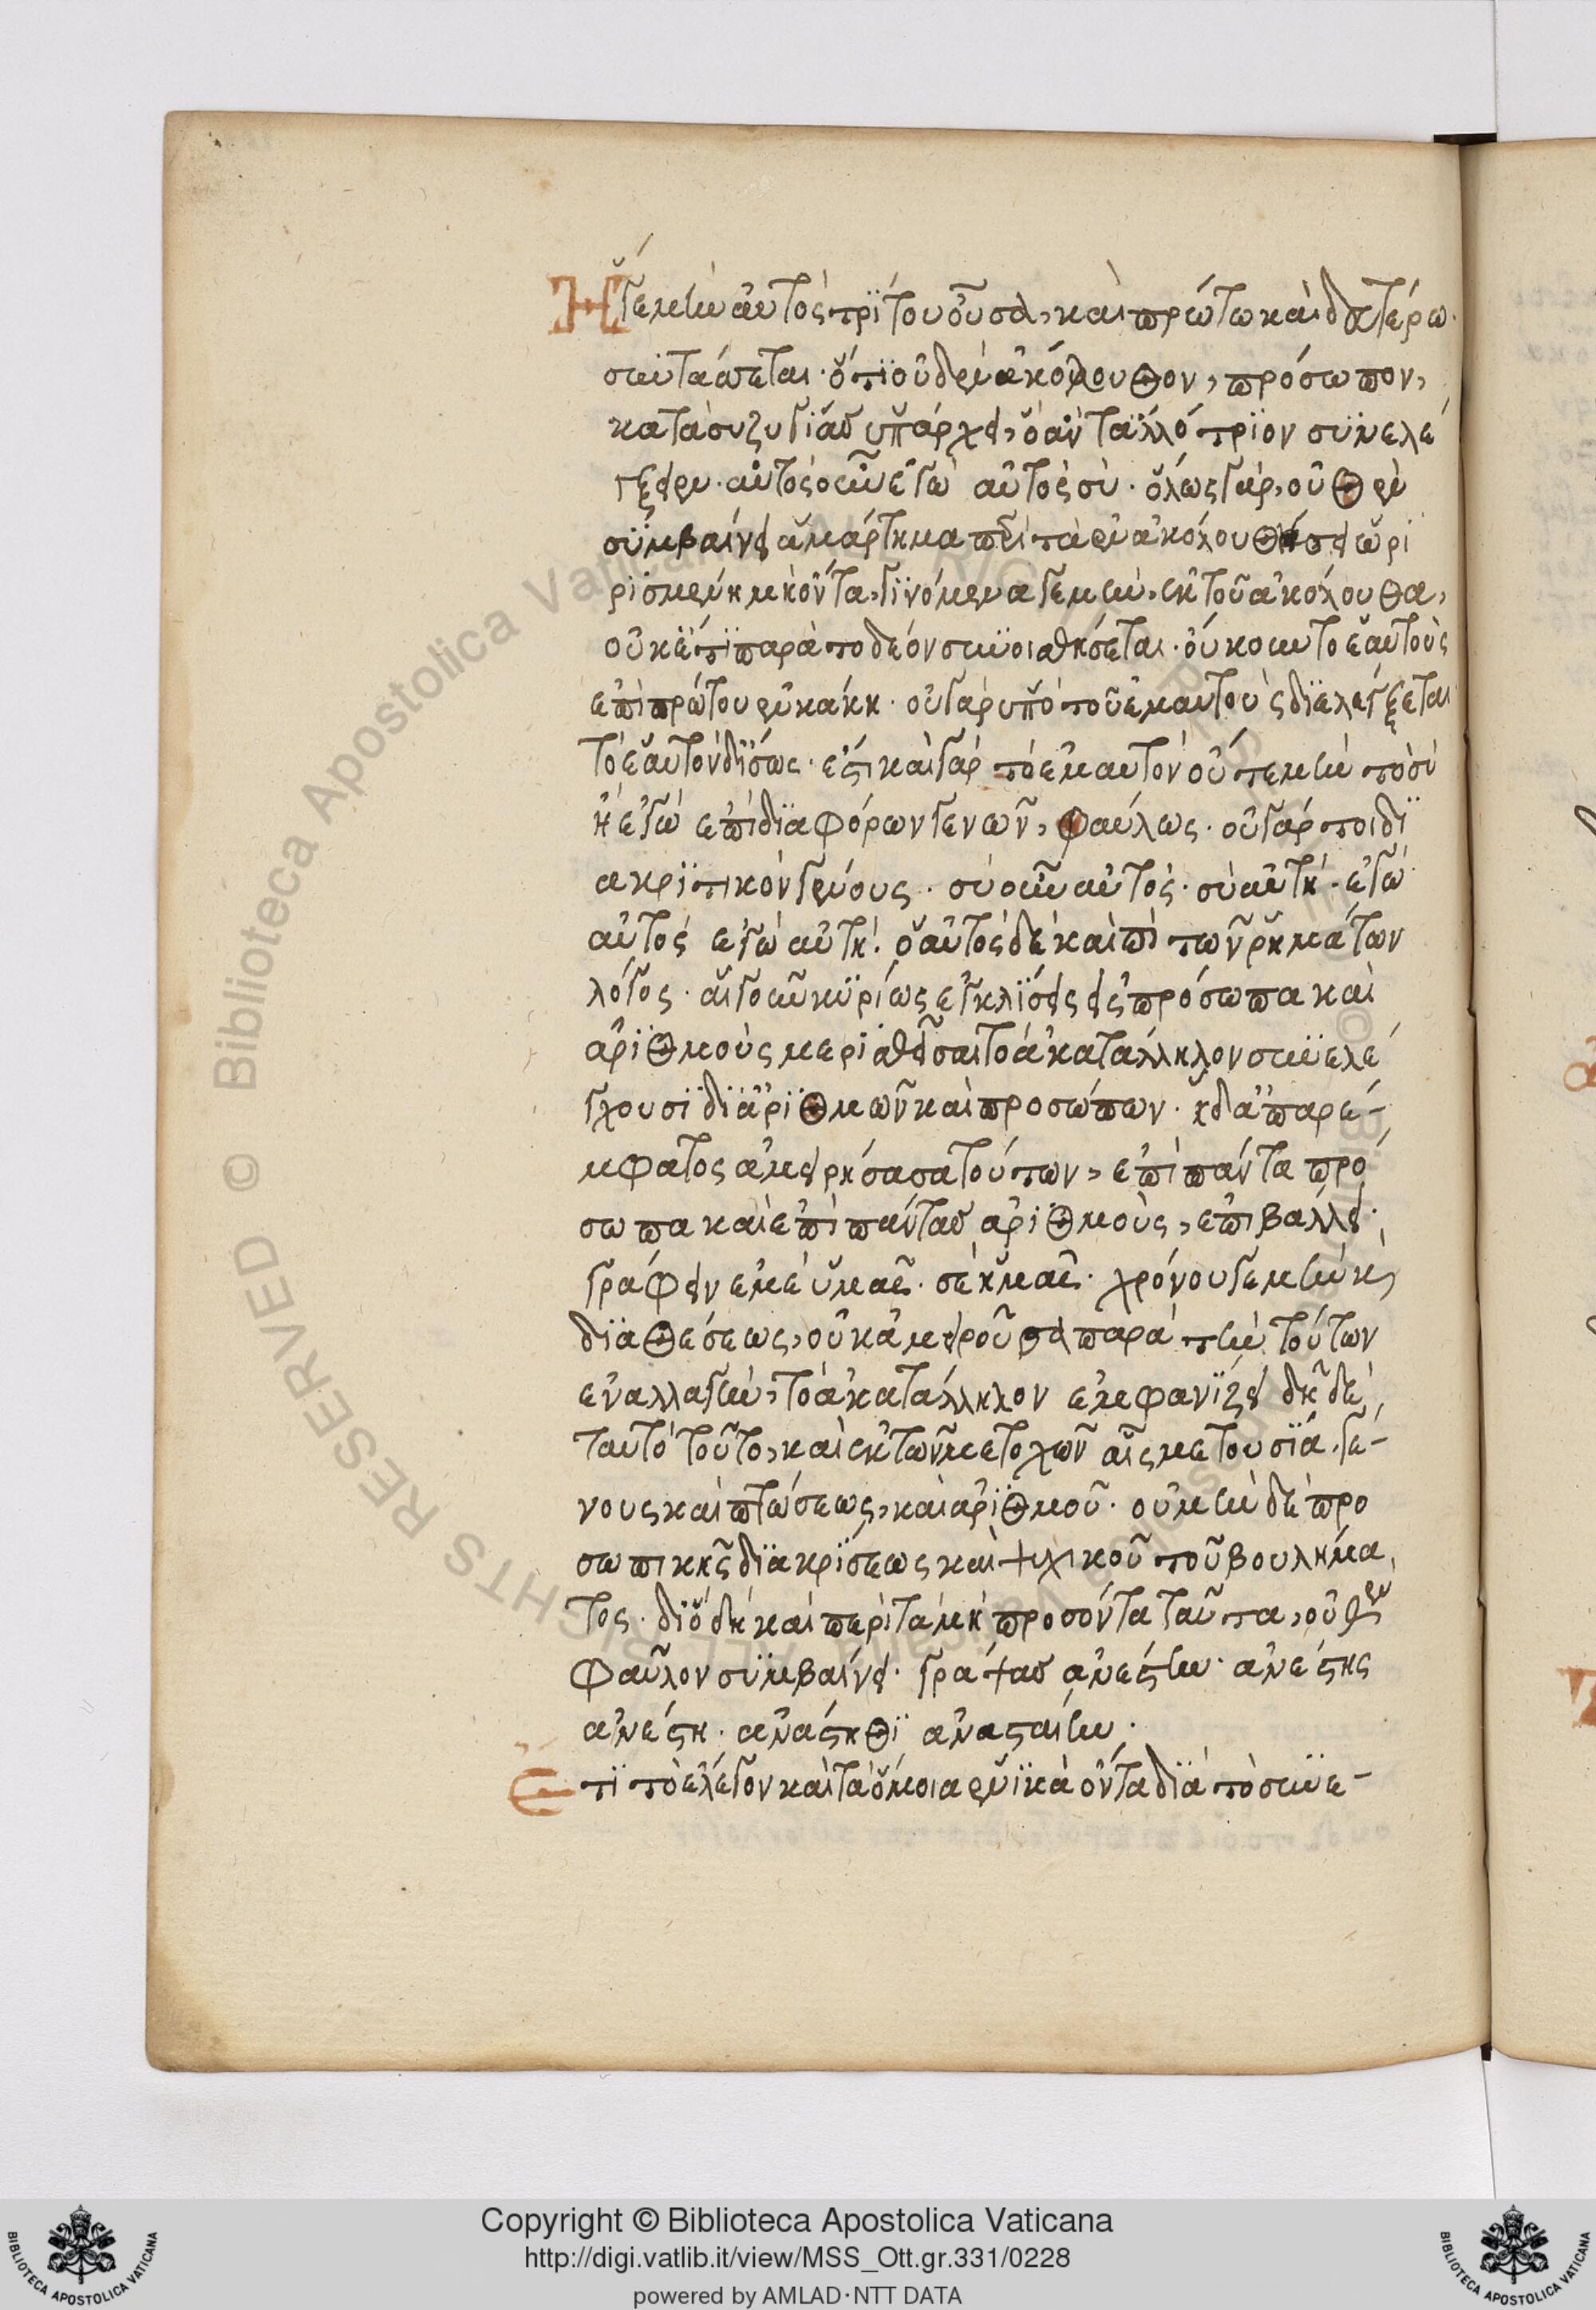 Ἥγε μὴν αὐτός τρίτου οὖσα, καὶ πρώτω καὶ δευτέρω
συντάσσεται · ὅτι οὐδὲν ἀκόλουθον, πρόσωπον,
κατὰ συζυγίας ὑπάρχει, ὃ ἂν τἀλλότριον συνελέ
γξειεν · αὐτὸς οὖν ἐγὼ αὐτὸς σύ · ὅλως γὰρ, οὐθὲν
συμβαίνει ἁμάρτημα περὶ τὰ ἐν ἀκολουθήσει ὡρι
ρισμένη μὴ ὄντα, γινόμενα γε μὴν, ἐκ τοῦ ἀκόλουθα,
οὐκέτι παρὰ τὸ δέον συνοισθήσεται · οὔκουν τὸ ἑαυτοὺς
ἐπὶ πρώτου ἐν κακίη · οὐ γὰρ ὑπὸ τοῦ ἐμαυτοὺς διελεγξεται
τὸ ἑαυτὸν δ' ἴσως · ἔστι καὶ γὰρ τὸ ἐμαυτὸν οὔτε μὴν τὸ σὺ
ἢ ἐγὼ ἐπὶ διαφόρων γενῶν, φαύλως · οὐ γάρ τοι δι
ακριτικὸν γένους · σὺ οὖν αὐτός · σὺ αὐτή · ἐγὼ
αὐτός ἐγὼ αὐτή · ὁ αὐτὸς δὲ καὶ ἐπὶ τῶν ῥημάτων
λόγος · αἵ γ' οὖν κυρίως ἐγκλίσεις εἰς πρόσωπα καὶ
ἀριθμοὺς μερισθεῖσαι τὸ ἀκατάλληλον συνελέ
γχουσι δι' ἀριθμῶν καὶ προσώπων · ἡ δ' ἀπαρέ-
μφατος ἀμοιρήσασα τούτων, ἐπὶ πάντα πρό
σωπα καὶ ἐπὶ πάντας ἀριθμοὺς, ἐπιβάλλει ·
γράφειν ἐμὲ ὑμᾶς · σὲ ἡμᾶς · χρόνου γε μὴν καὶ
διαθέσεως, οὐκ ἀμοιροῦσα παρὰ τὴν τούτων
ἐναλλαγὴν, τὸ ἀκατάλληλον ἐμφανίζει δῆλον δὲ
ταυτὸ τοῦτο, καὶ ἐκ τῶν μετοχῶν αἷς μετουσία, γέ-
νους καὶ πτώσεως, καὶ ἀριθμοῦ · οὐ μὴν δὲ προ
σωπικῆς διακρίσεως καὶ ψυχικοῦ τοῦ βουλήμα
τος · διὸ δὴ καὶ περὶ τὰ μὴ προσόντα ταῦτα, οὐθὲν
φαῦλον συμβαίνει · γράψας ἀνέστην · ἀνέστης
ἀνέστη · ἀνάστηθι ἀνασταίην ·
Ἔτι τὸ ἔλεγον καὶ τὰ ὅμοια ἑνικὰ ὄντα διὰ τὸ συνε-
Copyright © Biblioteca Apostolica Vaticana
http://digi.vatlib.it/view/MSS_Ott.gr.331/0228
powered by AMLAD·NTT DATA